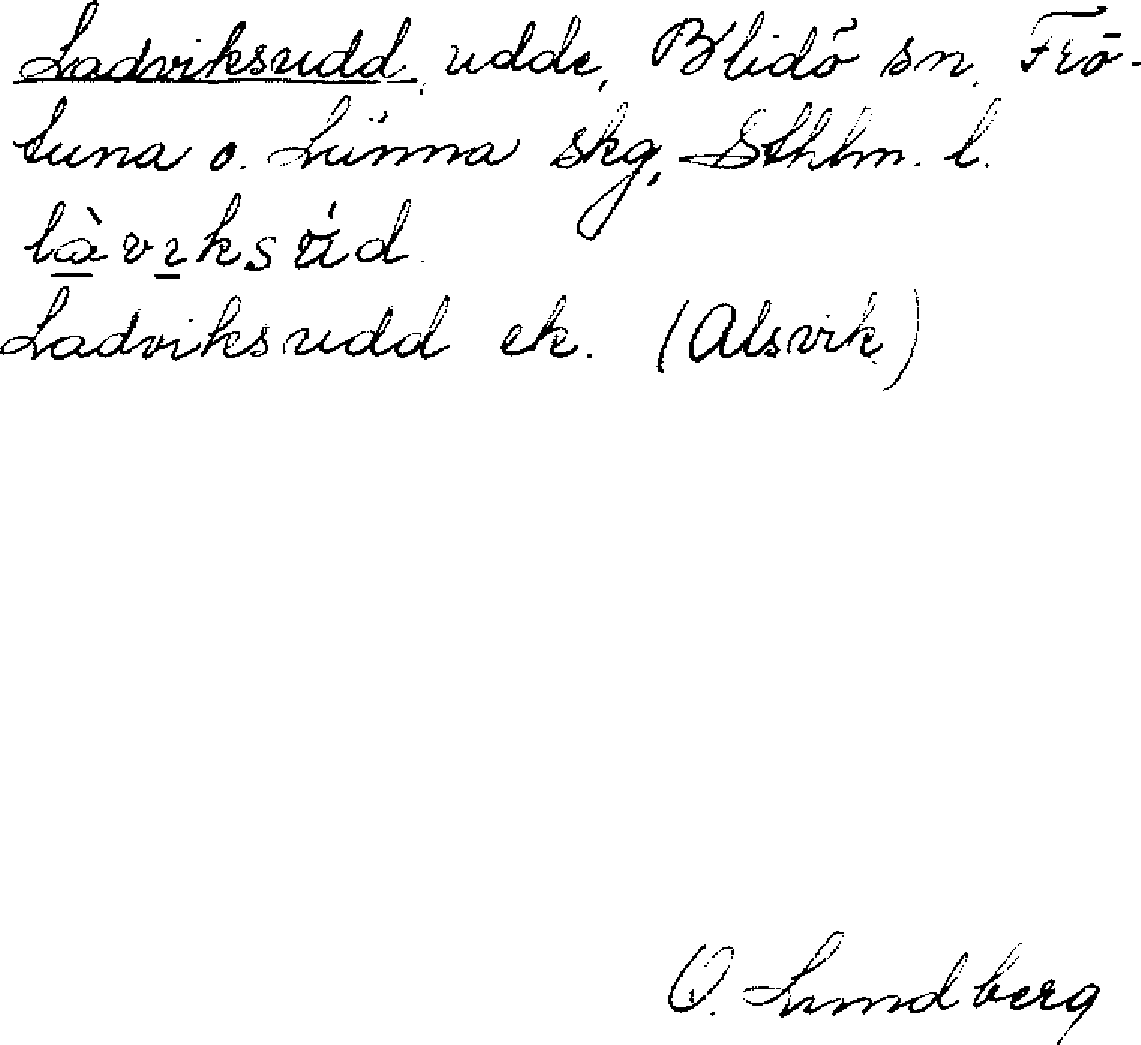 Ladviksudd, udde, Blidö sn, Frö-
tuna o. Länna skg, Sthlm. l.
làvıksúd.
Ladviksudd ek. (Alsvik)
O. Lundberg